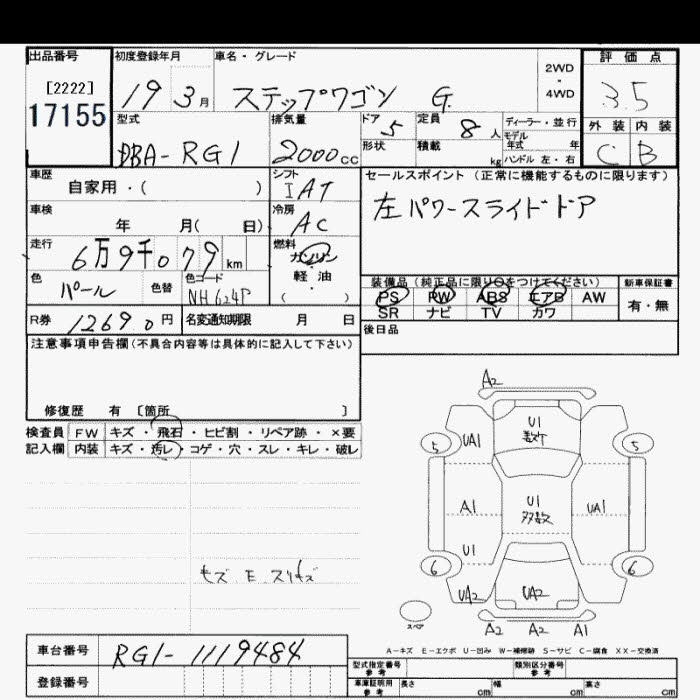 出品番号 初度登録年月 車名・グレード 評価点
[2222]
17155
19 3月 ステップワゴン G 2WD・4WD 3.5
型式 排気量 ドア 5 定員 8人 ディーラー・並行 外装 内装
DBA-RG1 2000cc 形状 積載 kg モデル年式 年 ハンドル 左・右 C B
車歴 シフト セールスポイント (正常に機能するものに限ります)
自家用・( ) IAT
左パワースライドドア
車検 冷房
年 月( 日) AC
走行 燃料
6万9千079km ガソリン
軽油
・
( )
色 色替 色コード 装備品 (純正品に限り○をつけてください) 新車保証書
パール NH624P PS PW ABS エアB AW 有・無
SR ナビ TV カワ
R券 12690円 名変通知期限 月 日 後日品
注意事項申告欄(不具合内容等は具体的に記入して下さい)
修復歴 有 [箇所 ]
検査員 FW キズ・飛石・ヒビ割・リペア跡・×要
記入欄 内装 キズ・汚レ・コゲ・穴・スレ・キレ・破レ
A2
U1
5 UA1 5
A1 U1 多数 UA1
U1
6 6
UA2 UA2
スペア A2 A2 A1
A-キズ E-エクボ U-凹み W-補修跡 S-サビ C-腐食 XX-交換済
車台番号 RG1-1119484
登録番号
型式指定番号 参考 類別区分番号 参考
車庫証明用 参考 長さ cm 幅 cm 高さ cm